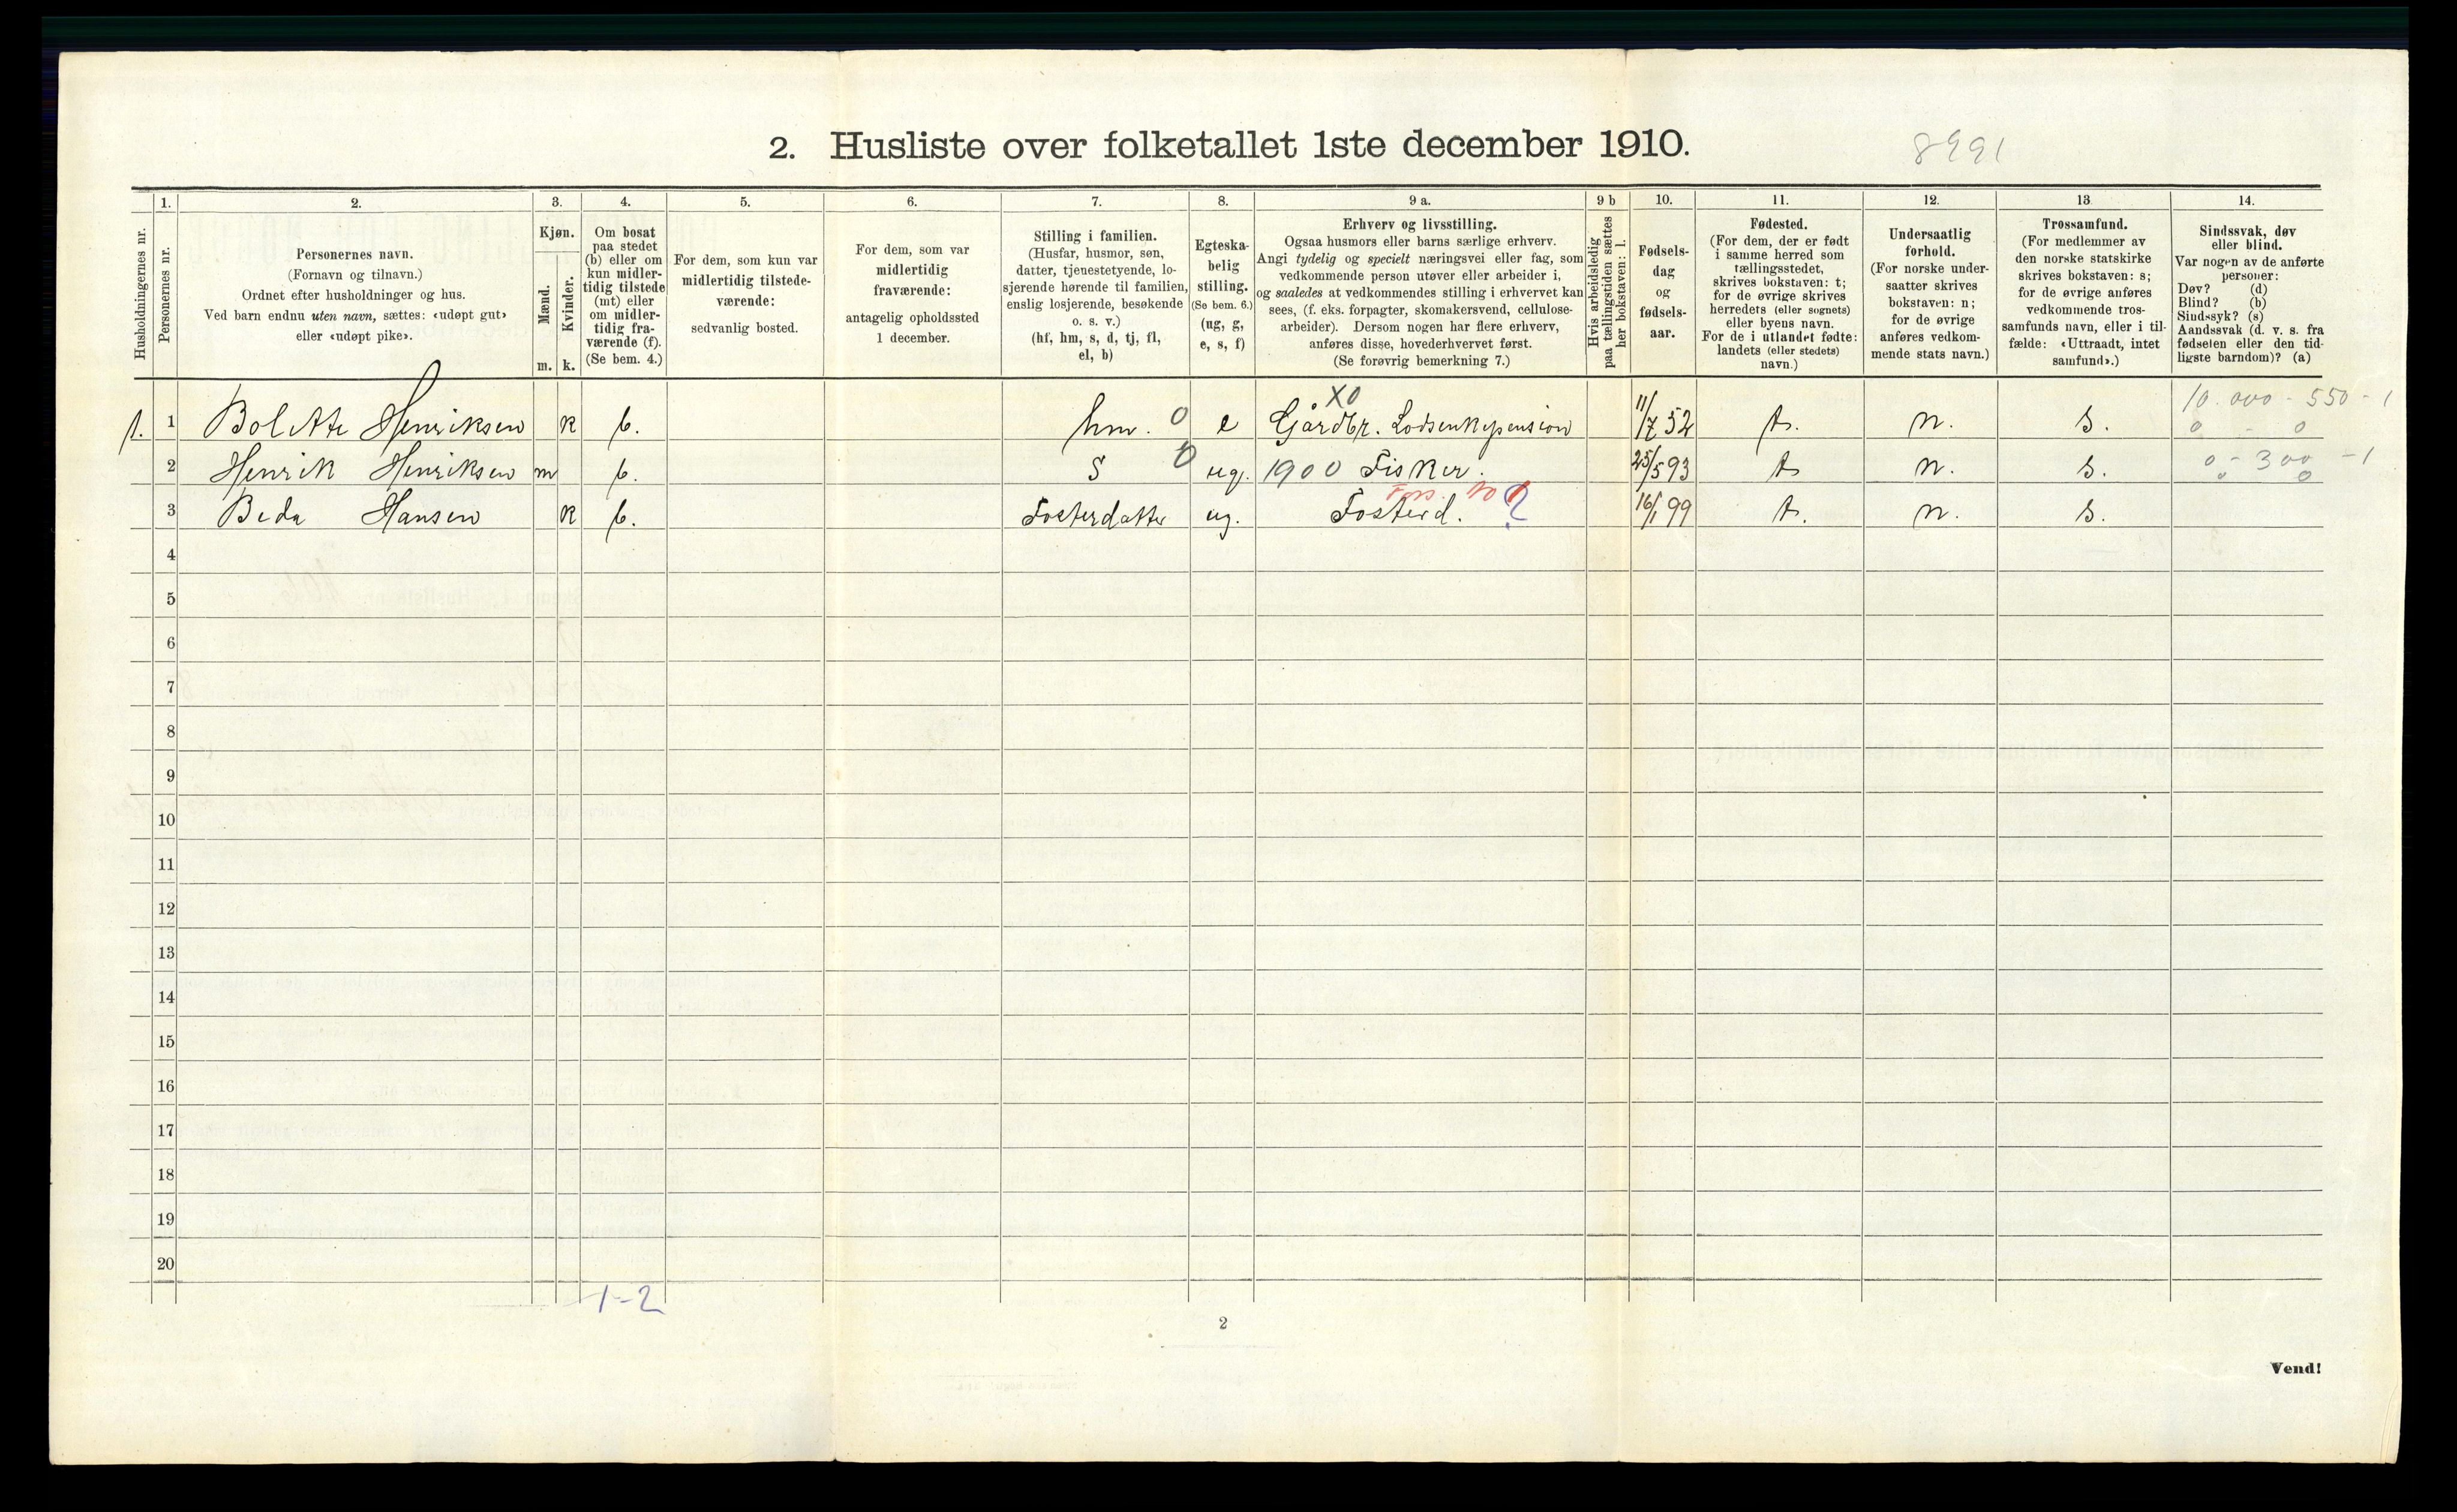 2. Husliste over folketallet 1ste december 1910.
8991
Husholdningernes nr.
1. Personernes nr.
2. Personernes navn.
(Fornavn og tilnavn.)
Ordnet efter husholdninger og hus.
Ved barn endnu uten navn, sættes: «udøpt gut»
eller «udøpt pike».
3. Kjøn.
Mænd. m.
Kvinder. k.
4. Om bosat
paa stedet
(b) eller om
kun midler-
tidig tilstede
(mt) eller
om midler-
tidig fra-
værende (f).
(Se bem. 4.)
5. For dem, som kun var
midlertidig tilstede-
værende:
sedvanlig bosted.
6. For dem, som var
midlertidig
fraværende:
antagelig opholdssted
1 december.
7. Stilling i familien.
(Husfar, husmor, søn,
datter, tjenestetyende, lo-
sjerende hørende til familien,
enslig losjerende, besøkende
o. s. v.)
(hf, hm, s, d, tj, fl,
el, b)
8. Egteska-
belig
stilling.
(Se bem. 6.)
(ug, g,
e, s, f)
9 a. Erhverv og livsstilling.
Ogsaa husmors eller barns særlige erhverv.
Angi tydelig og specielt næringsvei eller fag, som
vedkommende person utøver eller arbeider i,
og saaledes at vedkommendes stilling i erhvervet kan
sees, (f. eks. forpagter, skomakersvend, cellulose-
arbeider). Dersom nogen har flere erhverv,
anføres disse, hovederhvervet først.
(Se forøvrig bemerkning 7.)
9 b Hvis arbeidsledig
paa tællingstiden sættes
her bokstaven: l.
10. Fødsels-
dag
og
fødsels-
aar.
11. Fødested.
(For dem, der er født
i samme herred som
tællingsstedet,
skrives bokstaven: t;
for de øvrige skrives
herredets (eller sognets)
eller byens navn.
For de i utlandet fødte:
landets (eller stedets)
navn.)
12. Undersaatlig
forhold.
(For norske under-
saatter skrives
bokstaven: n;
for de øvrige
anføres vedkom-
mende stats navn.)
13. Trossamfund.
(For medlemmer av
den norske statskirke
skrives bokstaven: s;
for de øvrige anføres
vedkommende tros-
samfunds navn, eller i til-
fælde: «Uttraadt, intet
samfund».)
14. Sindssvak, døv
eller blind.
Var nogen av de anførte
personer:
Døv? (d)
Blind? (b)
Sindssyk? (s)
Aandssvak (d. v. s. fra
fødselen eller den tid-
ligste barndom)? (a)
X0 10.000 - 550 - 1
1. 1 Bolette Henriksen k b. hm. 0 e Gårdbr. Lodsenkepension 11/7 52 t. n. s. 0 - 0
2 Henrik Henriksen m b. s 0 ug. 1900 Fisker. 25/5 93 t n. s. 0 - 300 - 1
0 0
3 Beda Hansen k b. Fosterdatter ug. Fosterd. ? 16/1 99 t. n. s.
4
5
6
7
8
9
10
11
12
13
14
15
16
17
18
19
20
1-2
2
Vend!